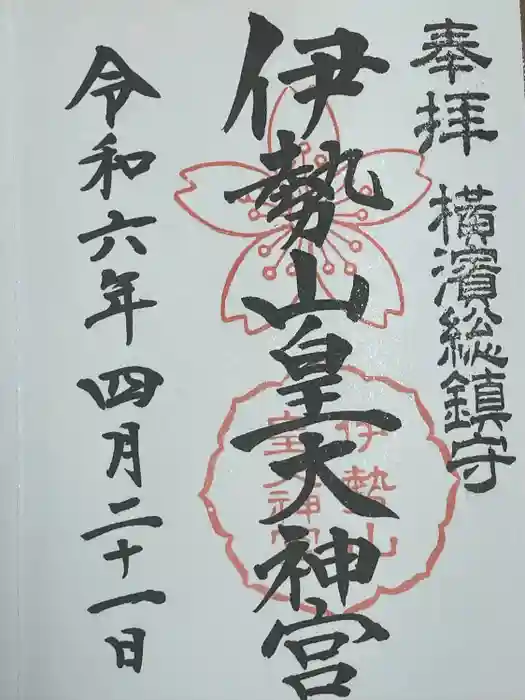 奉拝
横濱総鎮守
伊勢山皇大神宮
伊勢山
皇大神宮
令和六年四月二十一日